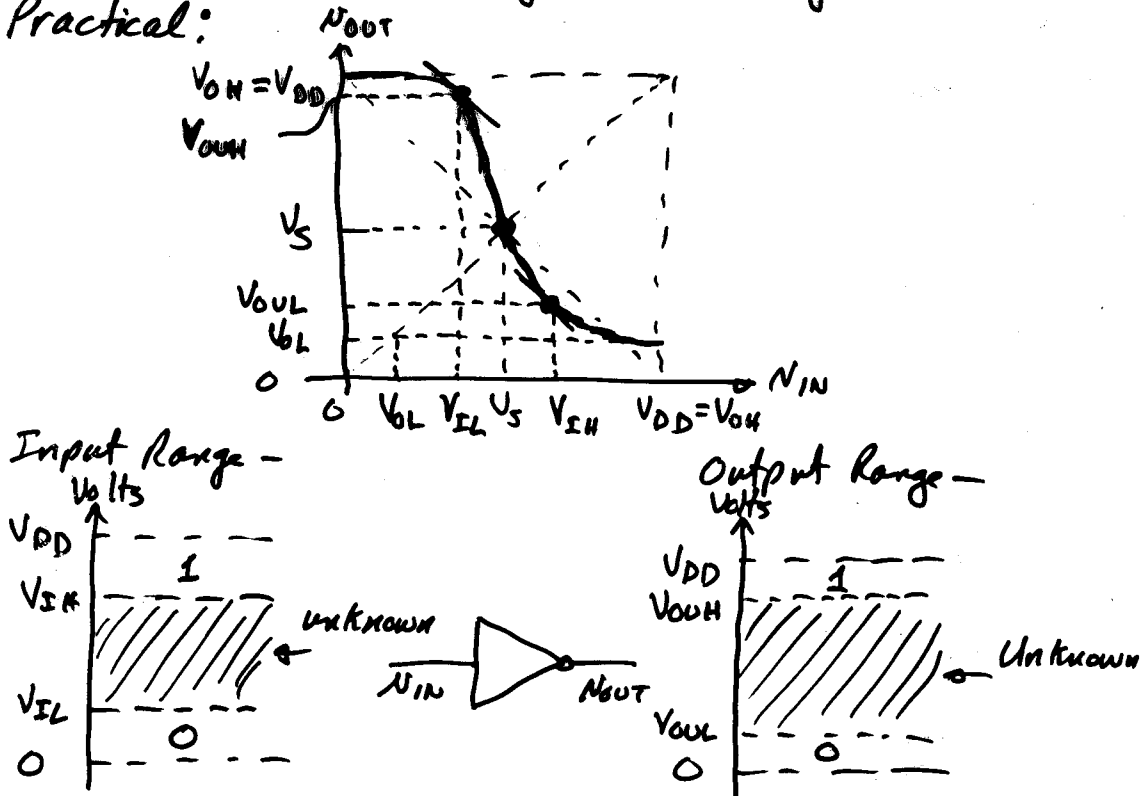 Practical:
VOUT
VOH = VDD
VOUH
VS
VOUL
VOL
0
0 VOL VIL VS VIH VDD = VOH
VIN
Input Range -
Volts
VDD
1
VIH
unknown
VIL
0
0
VIN
VOUT
Output Range -
Volts
VDD
1
VOUH
Unknown
VOUL
0
0